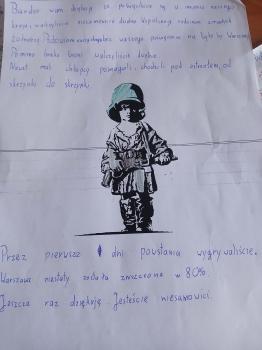 Bardzo wam dziękuję za poświęcenie się w imieniu naszego
kraju, walczyliście niesamowicie dumna Współczuję rodzinom zmarłych
żołnierzy. Podziwiam wasze poświęcenie na bycie by Warszawy
Pomimo braku broni walczyliście dumnie.
Nawet mali chłopcy pomagali, chodzili pod ostrzałem, od
skrzynki do skrzynki
Przez pierwsze 4 dni powstania wygrywaliście.
Warszawa niestety została zniszczona w 80%.
Jeszcze raz dziękuję. Jesteście niesamowici.